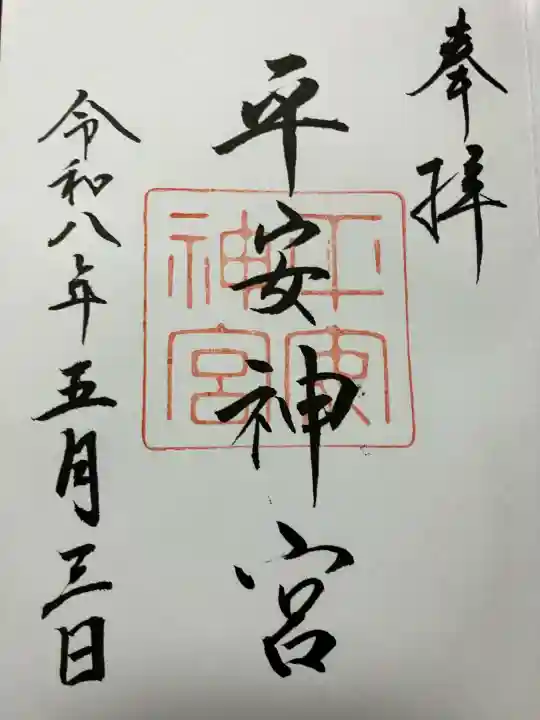 奉拝
平安神宮
平安神宮
令和八年五月三日